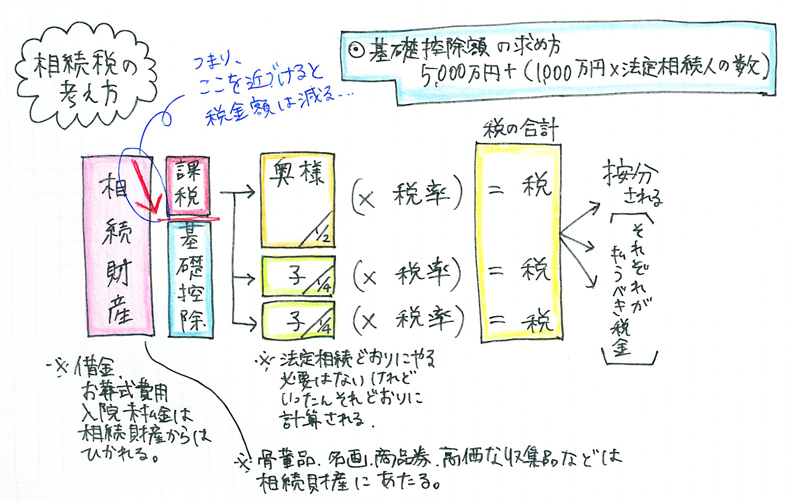 相続税の
考え方
つまり、
ここを近づけると
税金額は減る…
◎基礎控除額の求め方
5,000万円+(1,000万円×法定相続人の数)
税の合計
相続財産
課税
基礎控除
奥様
1/2
(× 税率)
= 税
子 1/4
(× 税率)
= 税
子 1/4
(× 税率)
= 税
按分
される
それぞれが
払うべき税金
※借金、
お葬式費用
入院未払金は
相続財産からは
ひかれる。
※法定相続どおりにやる
必要はないけれど
いったんそれどおりに
計算される.
※骨董品、名画、商品券、高価な収集品などは
相続財産にあたる。